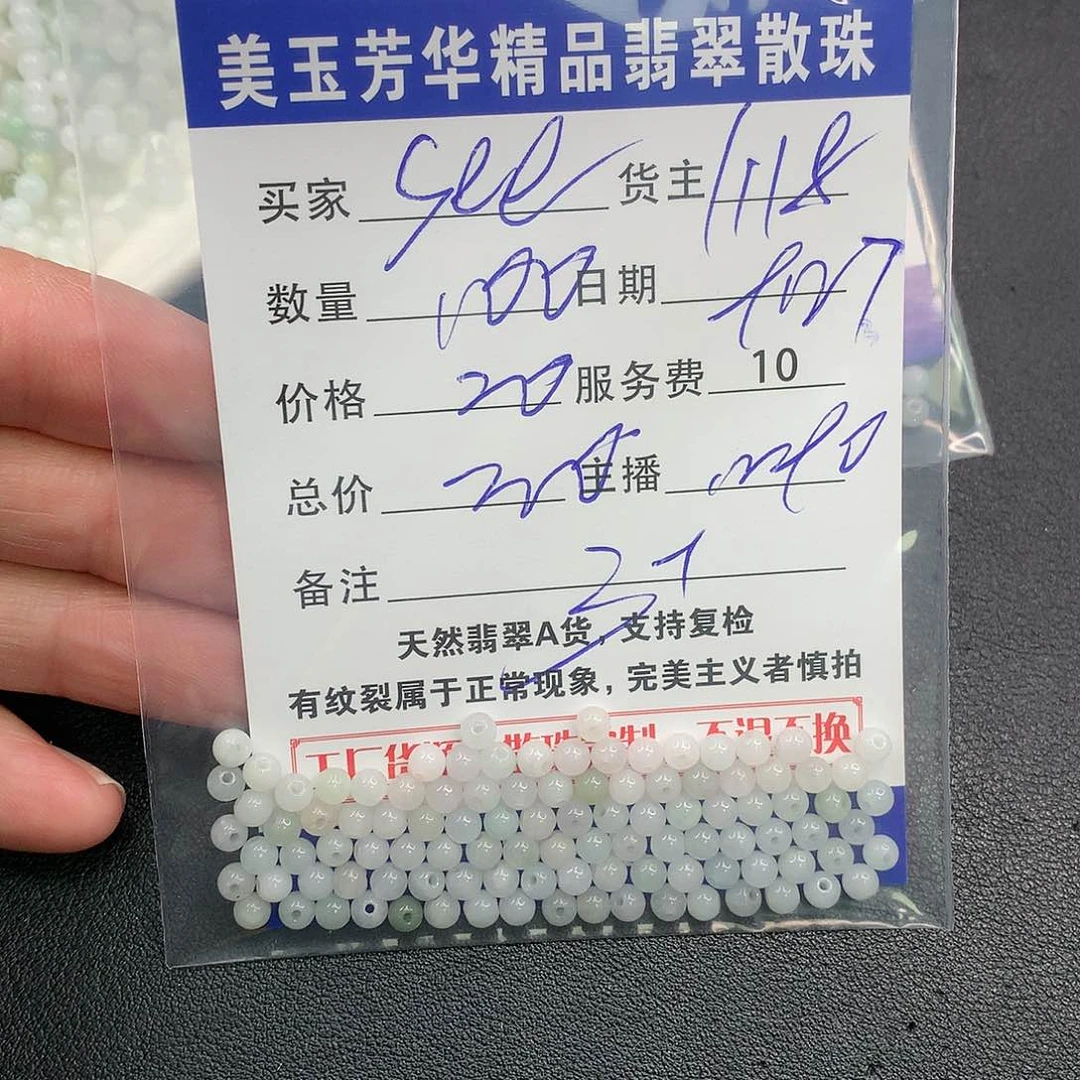 美玉芳华精品翡翠散珠
买家 gee 货主 1118
数量 100 日期
价格 20 服务费 10
总价 主播
备注
天然翡翠A货，支持复检
有纹裂属于正常现象，完美主义者慎拍
工厂货 散珠 制 不退不换